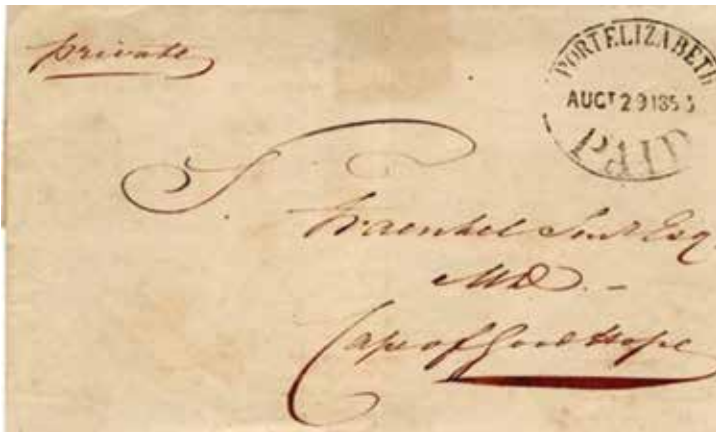 private
PORT ELIZABETH
AUGT 29 1853
PAID
S. Fraenkel Senr Esq
MD. -
Cape of Good Hope